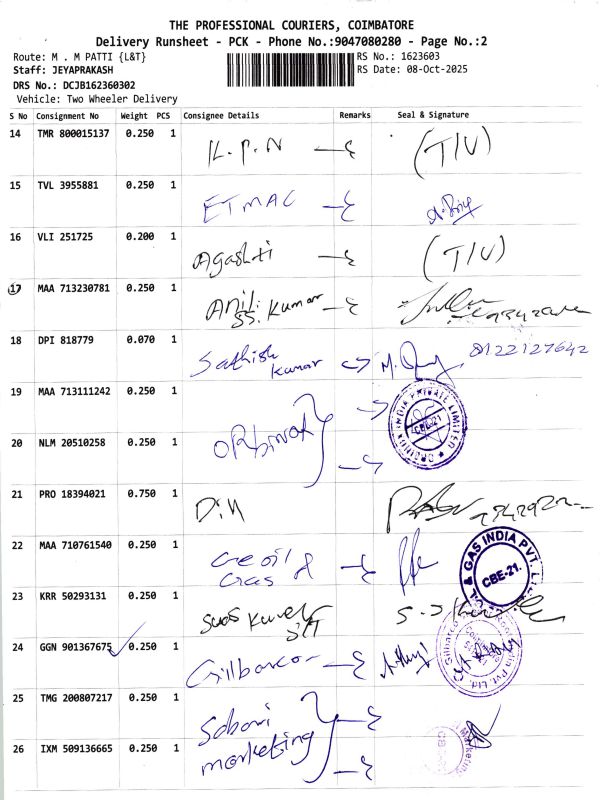 THE PROFESSIONAL COURIERS, COIMBATORE
Delivery Runsheet - PCK - Phone No.:9047080280 - Page No.:2
Route: M . M PATTI {L&T} RS No.: 1623603
Staff: JEYAPRAKASH RS Date: 08-Oct-2025
DRS No.: DCJB162360302
Vehicle: Two Wheeler Delivery
S No Consignment No Weight PCS Consignee Details Remarks Seal & Signature
14 TMR 800015137 0.250 1 K.P.N (T/U)
15 TVL 3955881 0.250 1 ETMAC
16 VLI 251725 0.200 1 Agashti (T/U)
17 MAA 713230781 0.250 1 Anil.
SS. Kumar
18 DPI 818779 0.070 1 Sathish 8122127642
Kumar
19 MAA 713111242 0.250 1
20 NLM 20510258 0.250 1
CBE-21
PRIVATE LIMITED
21 PRO 18394021 0.750 1
22 MAA 710761540 0.250 1 Ge oil &
Gas
& GAS INDIA PVT.
CBE-21.
23 KRR 50293131 0.250 1
24 GGN 901367675 0.250 1 Gilbarco
25 TMG 200807217 0.250 1 Sabari
marketing
26 IXM 509136665 0.250 1